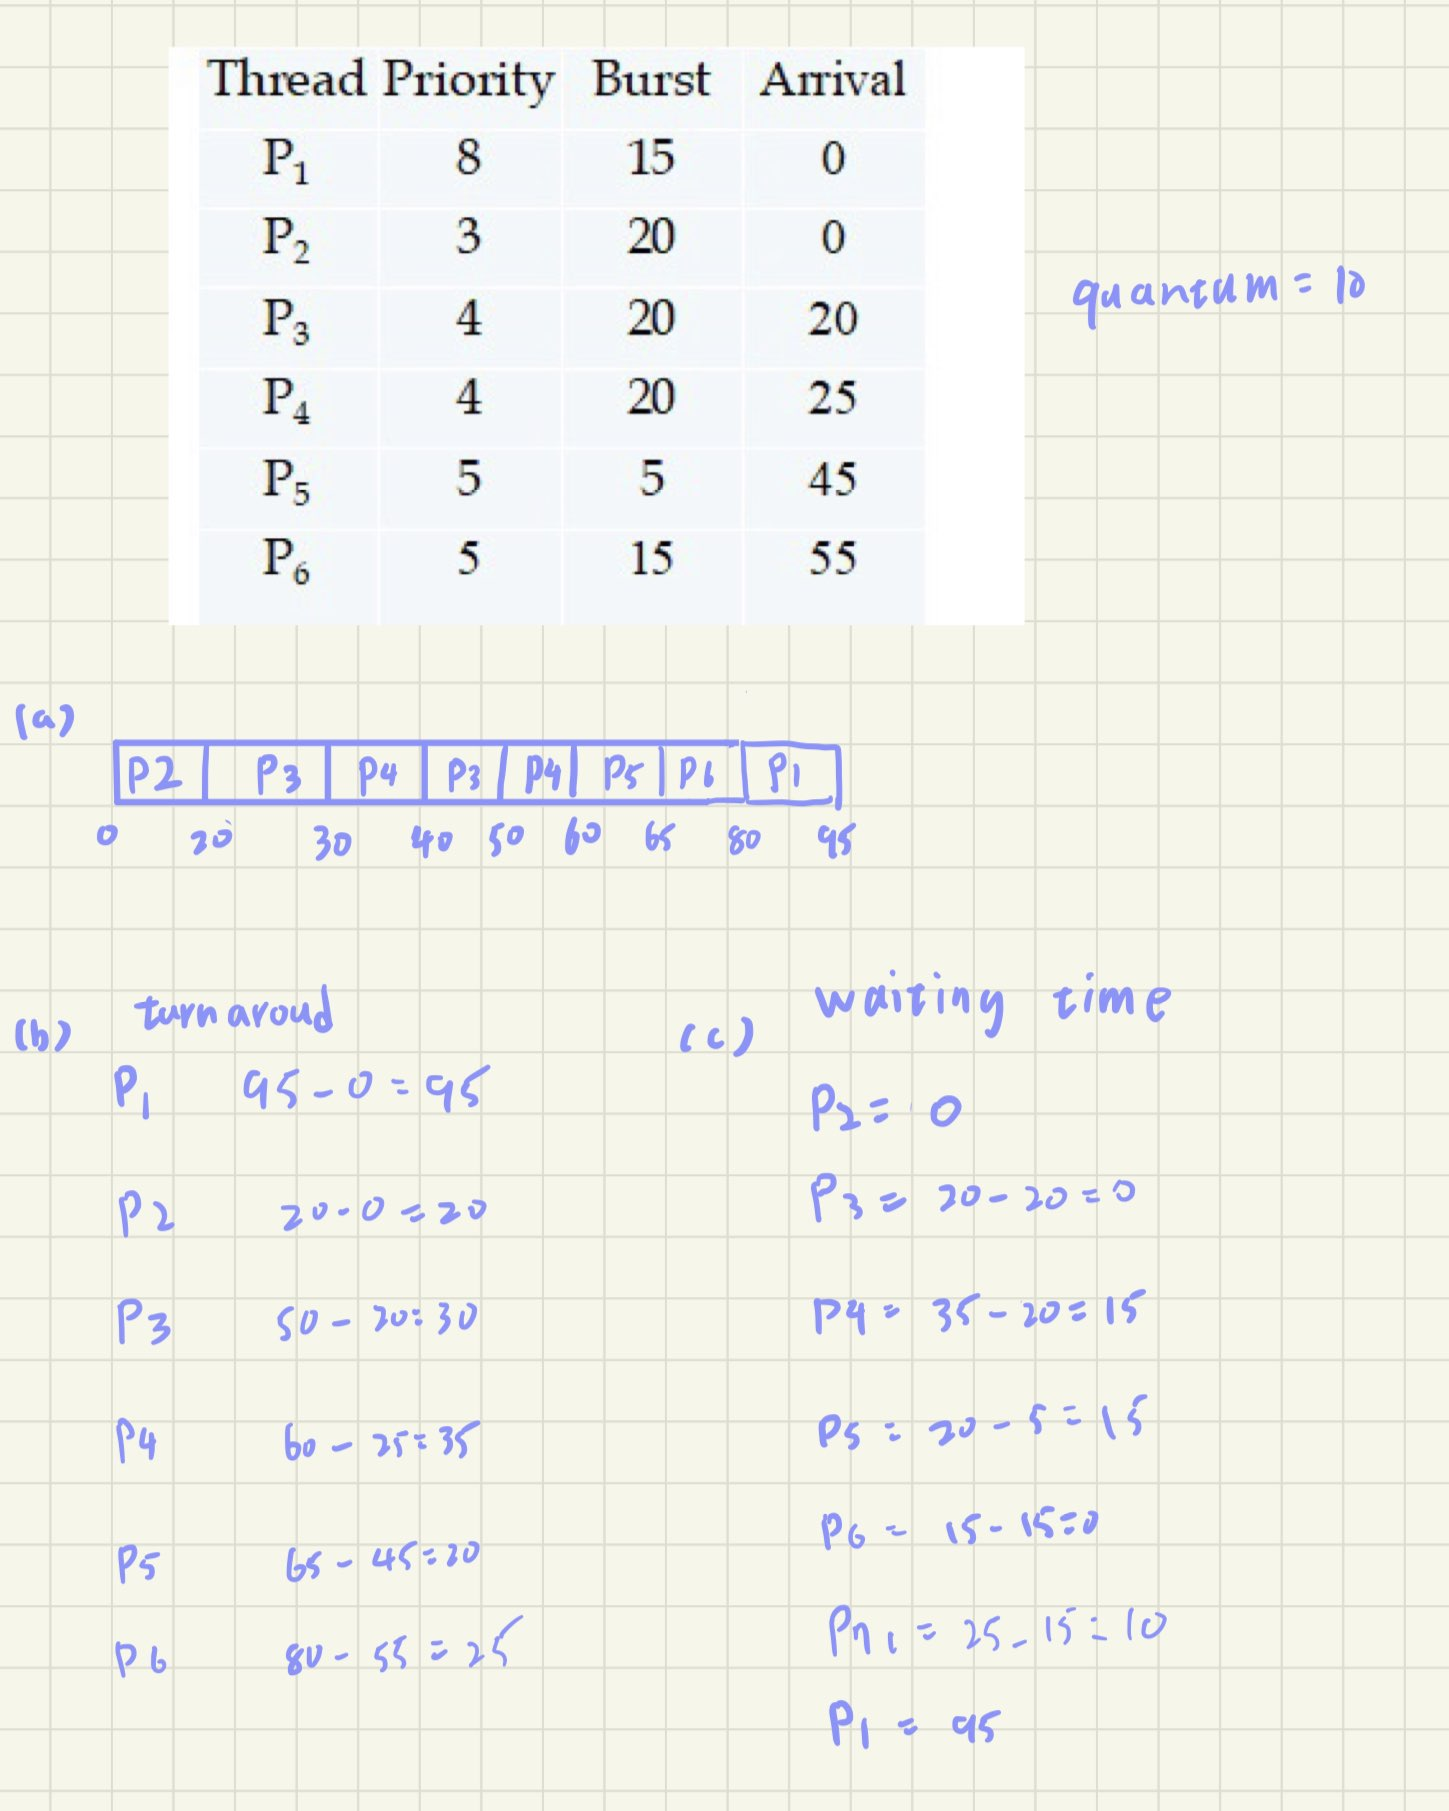 Thread Priority Burst Arrival
P₁ 8 15 0
P₂ 3 20 0
P₃ 4 20 20
P₄ 4 20 25
P₅ 5 5 45
P₆ 5 15 55
quantum = 10
(a)
P2 P3 P4 P3 P4 P5 P6 P1
0 20 30 40 50 60 65 80 95
(b) turnaroud
P1 95 - 0 = 95
P2 20 - 0 = 20
P3 50 - 20 = 30
P4 60 - 25 = 35
P5 65 - 45 = 20
P6 80 - 55 = 25
(c) waiting time
P2 = 0
P3 = 20 - 20 = 0
P4 = 35 - 20 = 15
P5 = 20 - 5 = 15
P6 = 15 - 15 = 0
= 25 - 15 = 10
P1 = 95